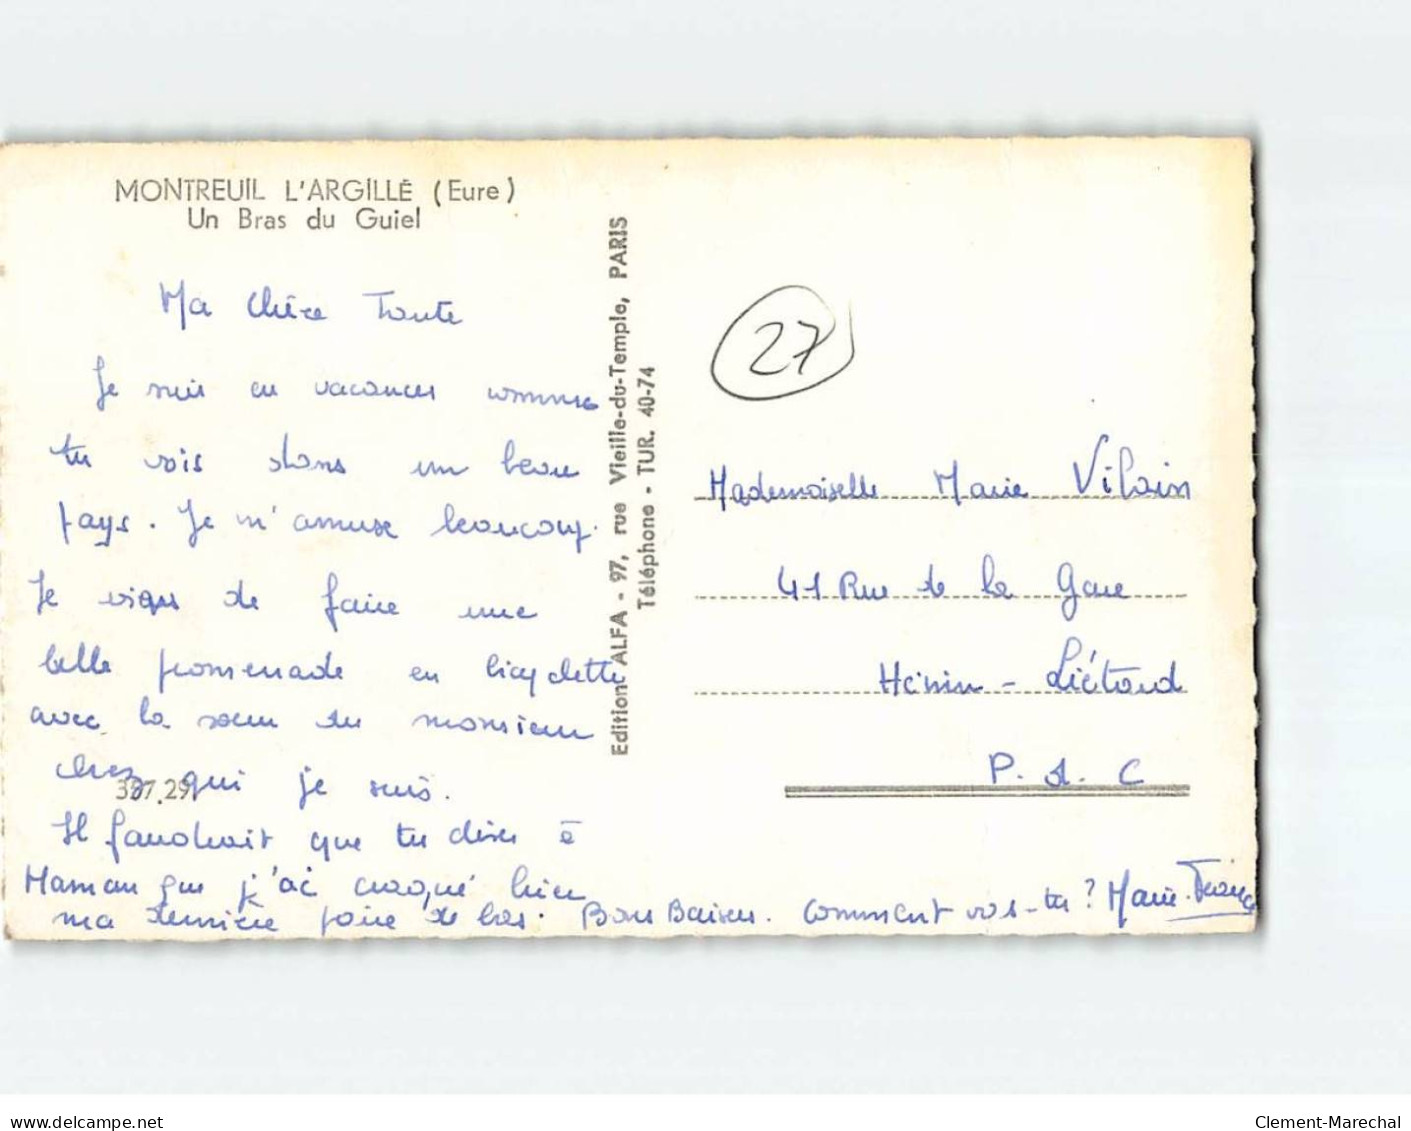 MONTREUIL L'ARGILLÉ (Eure)
Un Bras du Guiel
Ma Chère Tante
Je suis en vacances comme
tu vois dans un beau
pays. Je m'amuse beaucoup.
Je viens de faire une
belle promenade en bicyclette
avec la sœur du monsieur
chez qui je suis.
387.29
Il faudrait que tu dises à
Maman que j'ai craqué hier
ma dernière paire de bas. Bons Baisers. Comment vas-tu? Marie-France
Edition ALFA - 97, rue Vieille-du-Temple, PARIS
Téléphone - TUR. 40-74
27
Mademoiselle Marie Vilain
41 Rue de la Gare
Hénin - Liétard
P. d. C
www.delcampe.net
Clement-Marechal